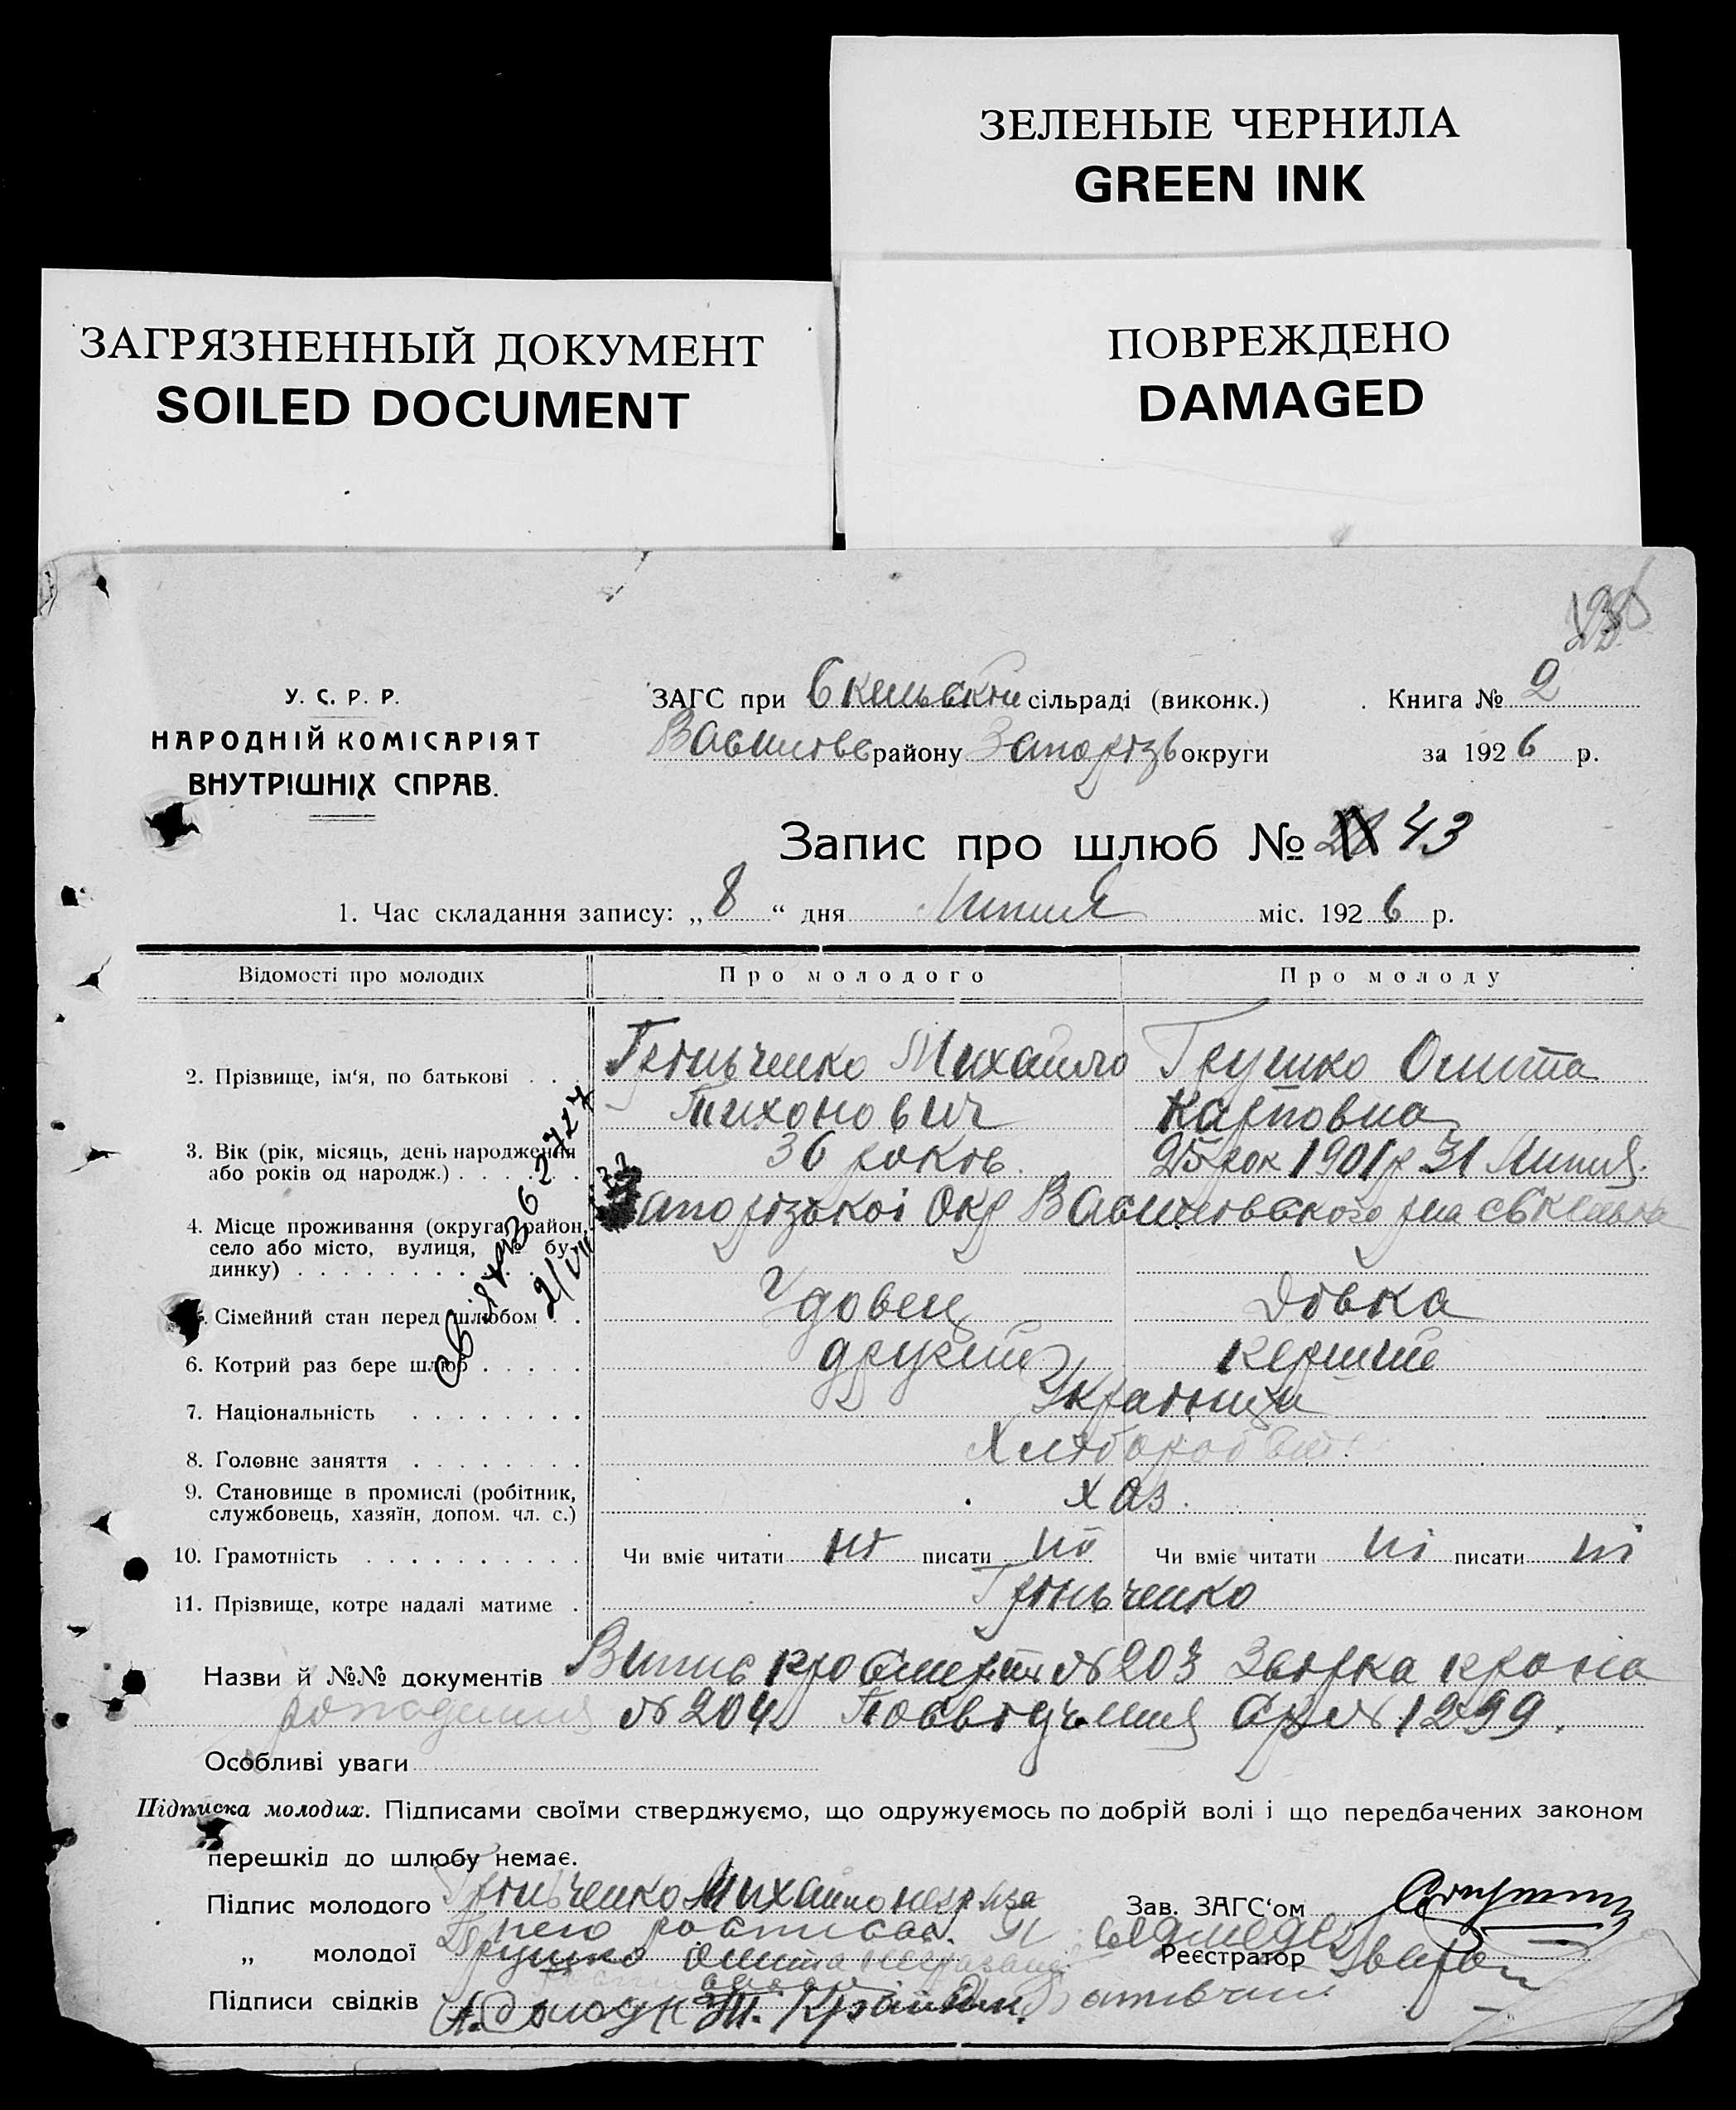 ЗЕЛЕНЫЕ ЧЕРНИЛА
GREEN INK
ЗАГРЯЗНЕННЫЙ ДОКУМЕНТ
SOILED DOCUMENT
ПОВРЕЖДЕНО
DAMAGED
У. С. Р. Р.
НАРОДНІЙ КОМІСАРІЯТ
ВНУТРІШНІХ СПРАВ.
ЗАГС при Скельскій сільраді (виконк.)
Василівс району Запорізь округи
Книга № 2
за 1926 р.
Запис про шлюб № 43
1. Час складання запису: „8“ дня Липня міс. 1926 р.
Відомості про молодих
Про молодого
Про молоду
2. Прізвище, ім'я, по батькові
Гріньченко Михайло Тихонович
Грушко Олита Карповна
3. Вік (рік, місяць, день народження або років од народж.)
36 років
25 рок 1901 р 31 Липня
4. Місце проживання (округа, район, село або місто, вулиця, № будинку)
Запорізької Окр Василівського рна с Скелька
5. Сімейний стан перед шлюбом
Удовец
Дівка
6. Котрий раз бере шлюб
другий
перший
7. Національність
Українци
8. Головне заняття
Хлібороб
9. Становище в промислі (робітник, службовець, хазяїн, допом. чл. с.)
хаз.
10. Грамотність
Чи вміє читати ні писати ні
Чи вміє читати ні писати ні
11. Прізвище, котре надалі матиме
Гріньченко
Назви й №№ документів Випис про смерть № 203 Звірка про на
рождения № 204 Посвідчення Ср № 1299.
Особливі уваги
Підписка молодих. Підписами своїми стверджуємо, що одружуємось по добрій волі і що передбачених законом
перешкід до шлюбу немає.
Підпис молодого Гріньченко Михайло негр за
него росписав.
„ молодої Грушко Олита
Підписи свідків
Зав. ЗАГС'ом
Реєстратор